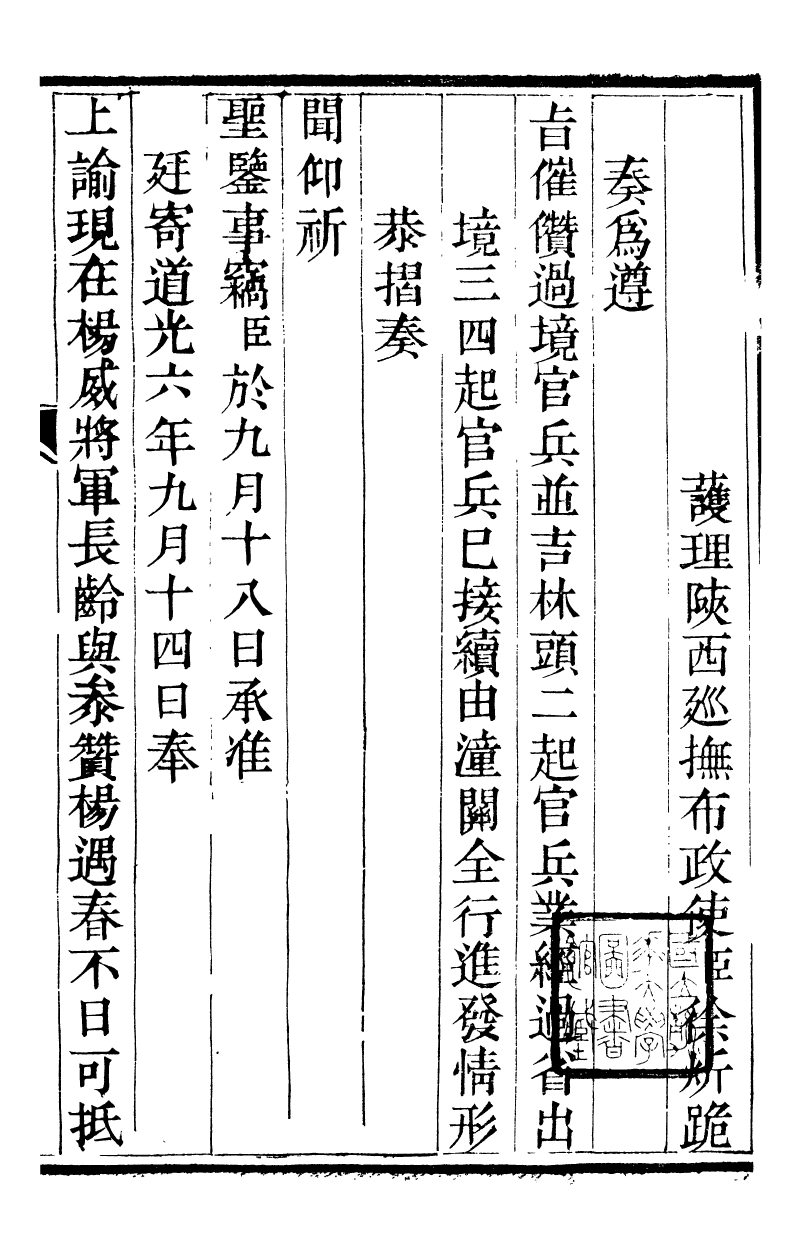 護理陝西廵撫布政使臣徐炘跪
奏爲遵
旨催儹過境官兵並吉林頭二起官兵業經過省出
境三四起官兵巳接續由潼關全行進發情形
恭摺奏
聞仰祈
聖鑒事竊臣於九月十八日承准
廷寄道光六年九月十四日奉
上諭現在楊威將軍長齡與叅贊楊遇春不日可抵